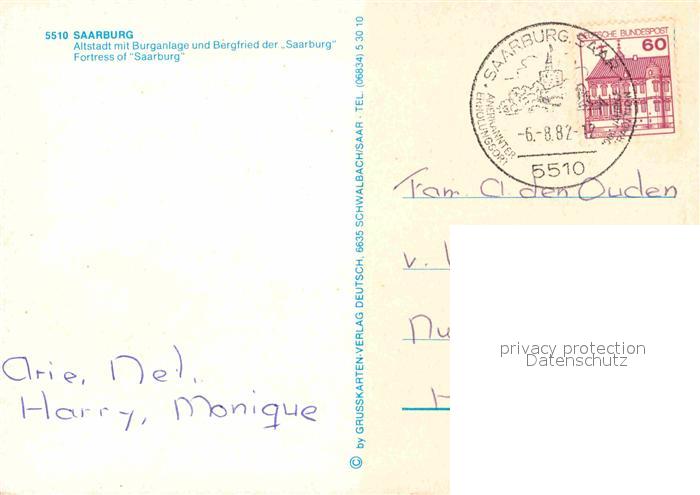 5510 SAARBURG
Altstadt mit Burganlage und Bergfried der „Saarburg"
Fortress of "Saarburg"
Arie, Nel,
Harry, Monique
© by GRUSSKARTEN-VERLAG DEUTSCH, 6635 SCHWALBACH/SAAR · TEL. (06834) 5 30 10
DEUTSCHE BUNDESPOST
60
· SAARBURG, SAAR ·
ANERKANNTER
ERHOLUNGSORT
-6.-8.82-12
5510
Fam A. den Ouden
v.
privacy protection
Datenschutz